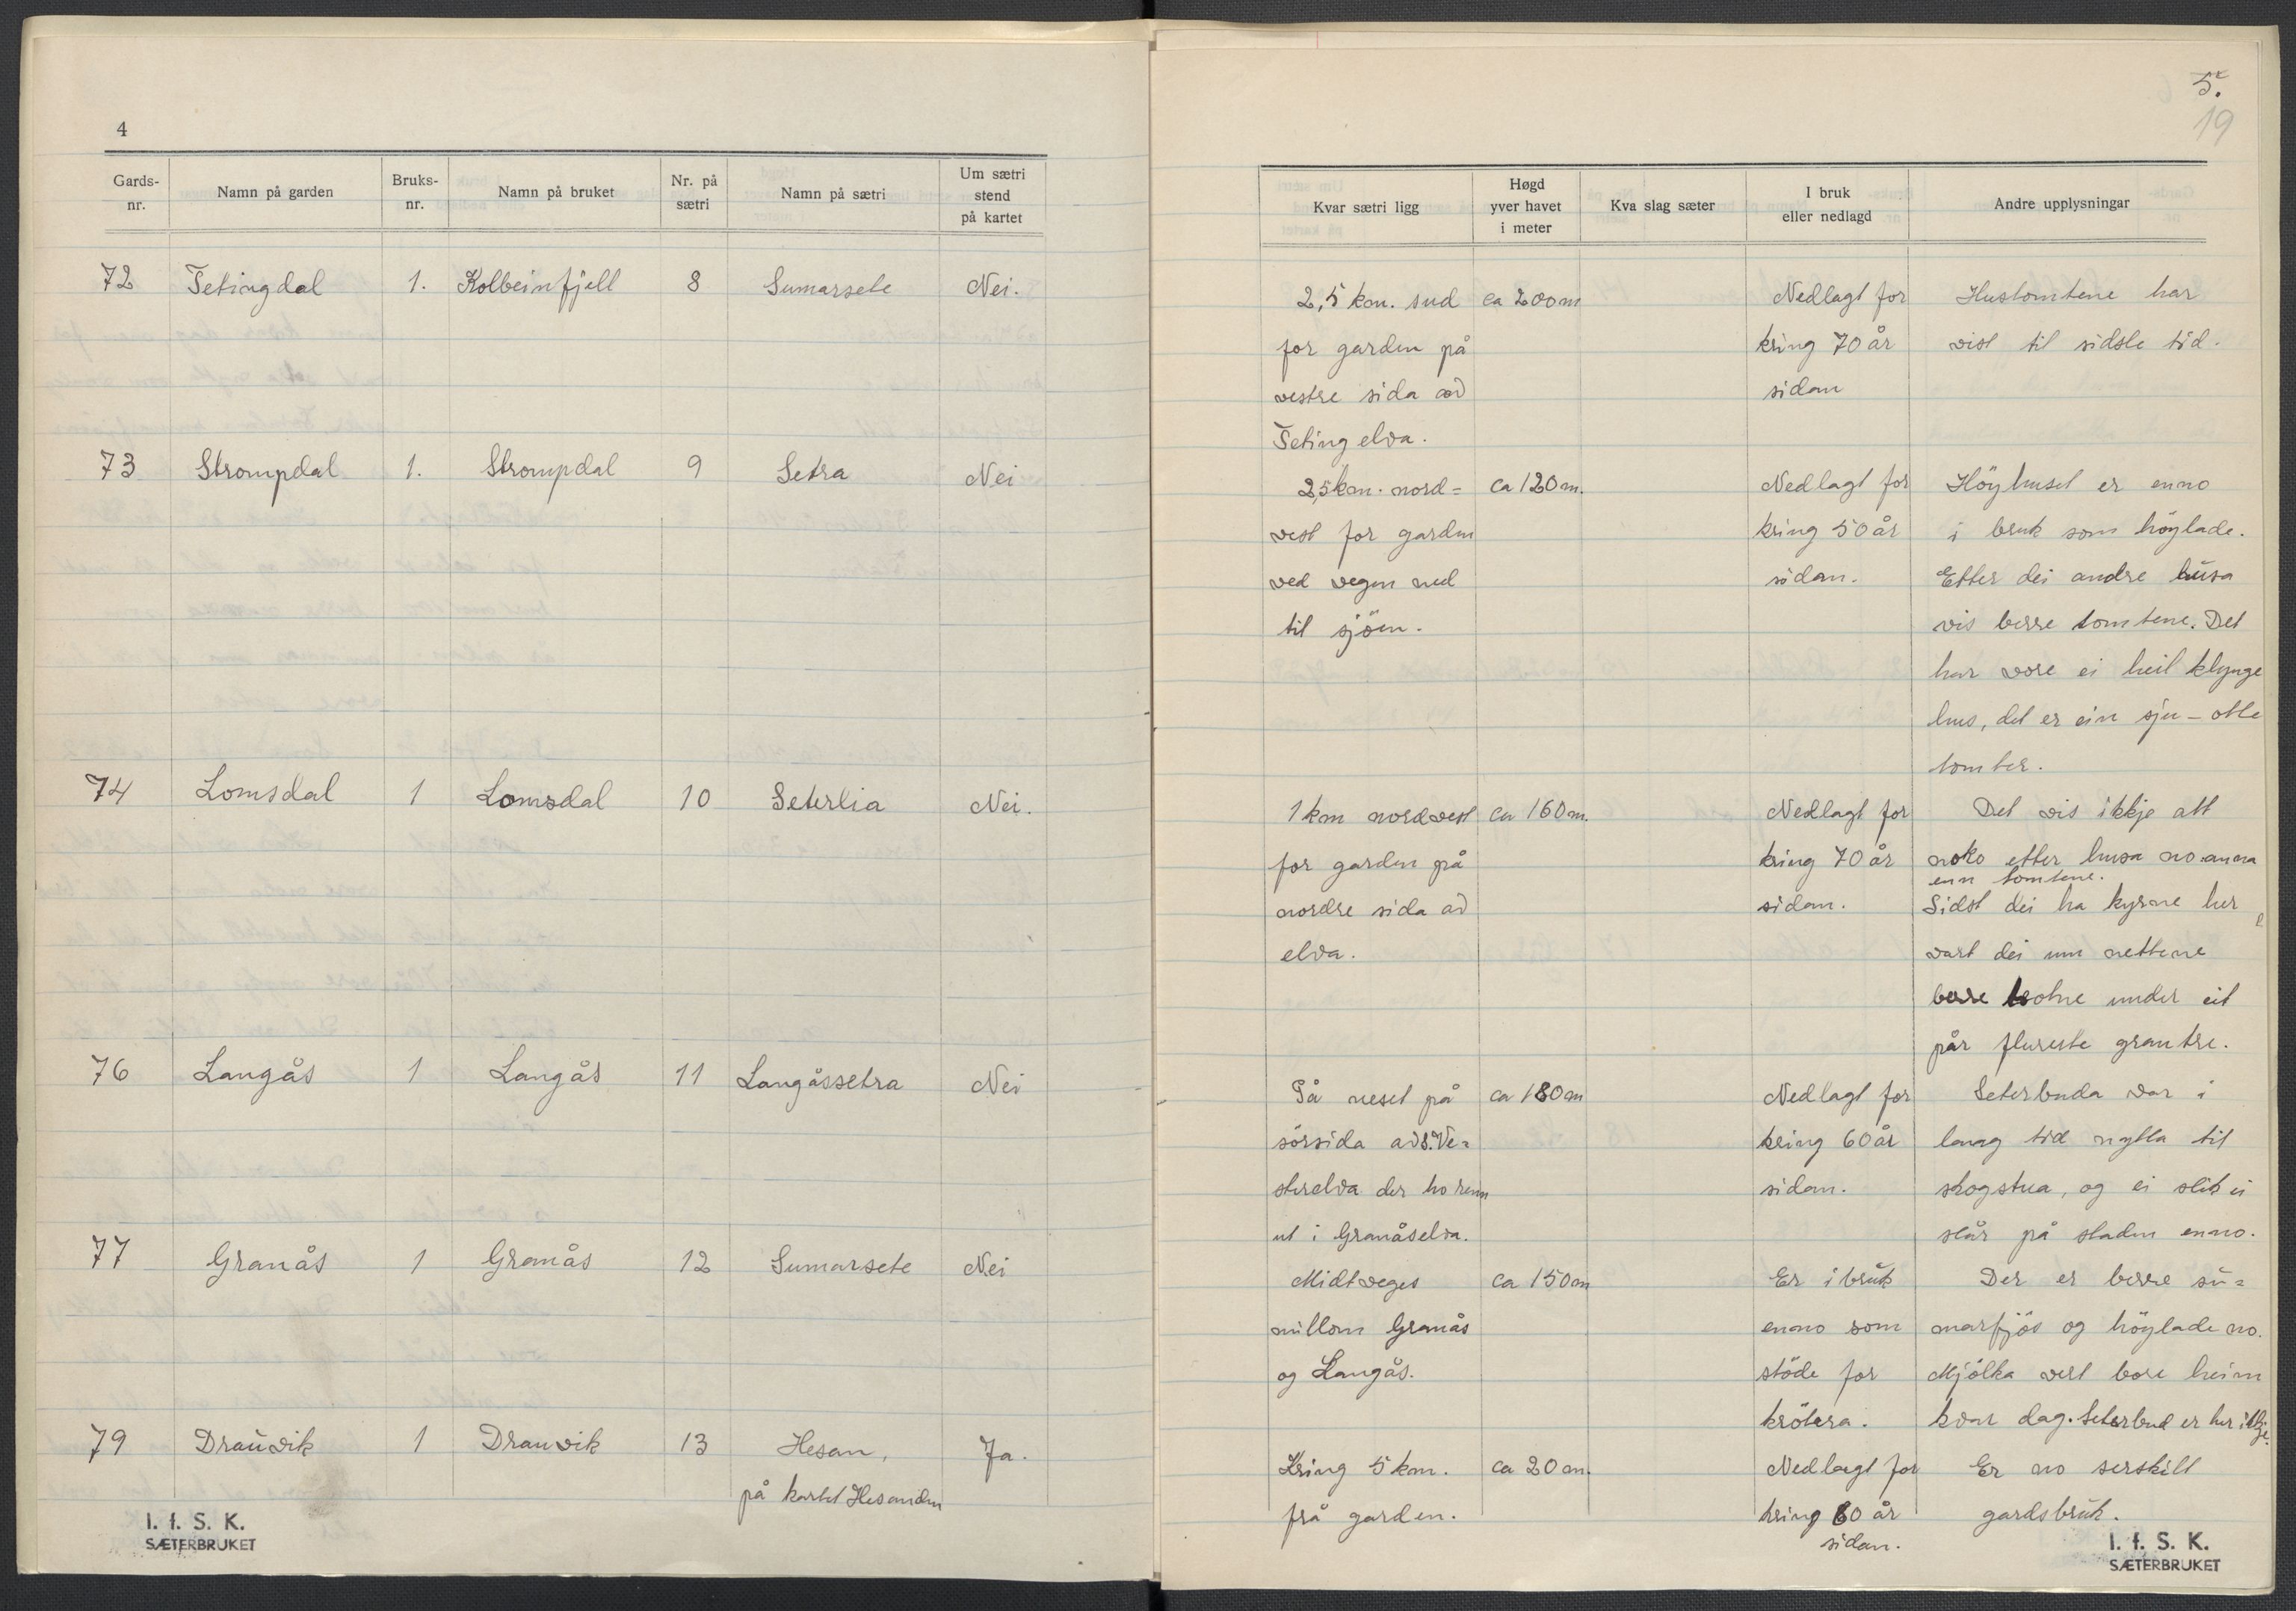 4
Gards-
nr.
Namn på garden
Bruks-
nr.
Namn på bruket
Nr. på
sætri
Namn på sætri
Um sætri
stend
på kartet
72 Tetingdal 1. Kolbeinfjell 8 Sumarsete Nei.
73 Strompdal 1. Strompdal 9 Setra Nei
74 Lomsdal 1 Lomsdal 10 Seterlia Nei.
76 Langås 1 Langås 11 Langåssetra Nei
77 Granås 1 Granås 12 Sumarsete Nei
79 Drauvik 1 Drauvik 13 Hesan, Ja.
på kartet Hesanden
I. f. S. K.
SÆTERBRUKET
5.
19
Kvar sætri ligg
Høgd
yver havet
i meter
Kva slag sæter
I bruk
eller nedlagd
Andre upplysningar
2,5 km. sud ca 200 m Nedlagt for Hustomtene har
for garden på kring 70 år vist til sidste tid.
vestre sida av sidan
Tetingelva.
2,5 km. nord= ca 120 m. Nedlagt for Höyhuset er enno
vest for garden kring 50 år i bruk som höylade.
ved vegen ned sidan. Etter dei andre husa
til sjöen. vis berre tomtene. Det
har vore ei heil klynge
hus, det er ein sju - otte
tomter.
1 km nordvest ca 160 m. Nedlagt for Det vis ikkje att
for garden på kring 70 år noko etter husa no anna
enn tomtene.
nordre sida av sidan. Sidst dei ha kyrne her
elva. vart dei um nettene
berre under eit
pår flureste grantre.
På neset på ca 180 m Nedlagt for Seterbuda var i
sörsida av S. Ve= kring 60 år lang tid nytta til
sterelva der ho renn sidan. skogstua, og ei slik ei
ut i Granåselva. står på staden enno.
Midtveges ca 150 m Er i bruk Der er berre su=
millom Granås enno som marfjös og höylade no.
og Langås. stöde for Mjölka vert bore heim
krötera. kvar dag. Seterbud er her ikkje.
Kring 5 km. ca 20 m. Nedlagt for Er no serskilt
frå garden. kring 60 år gardsbruk.
sidan.
I. f. S. K.
SÆTERBRUKET